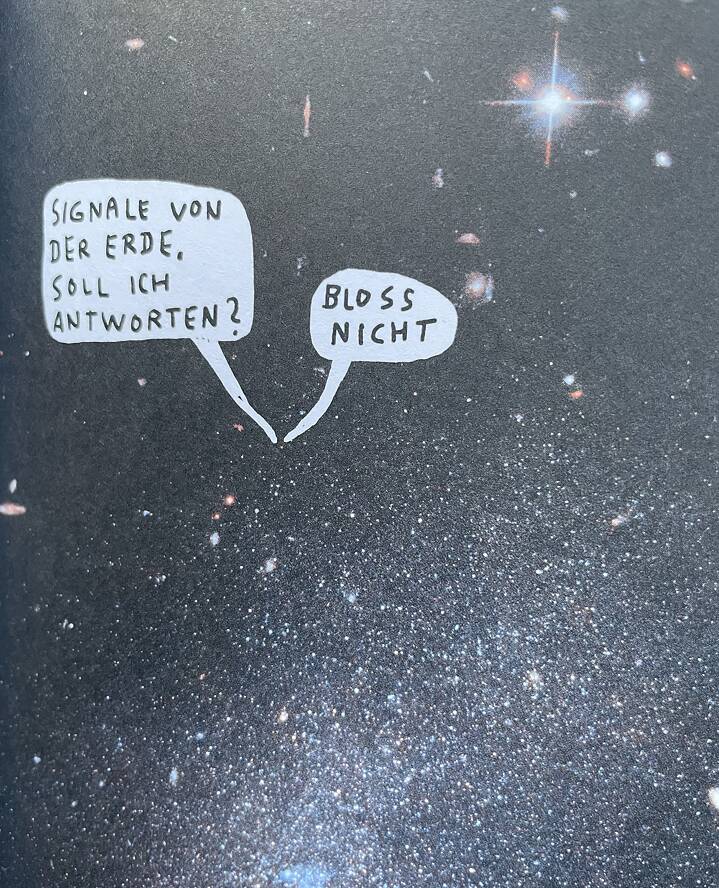 SIGNALE VON
DER ERDE.
SOLL ICH
ANTWORTEN?
BLOSS
NICHT